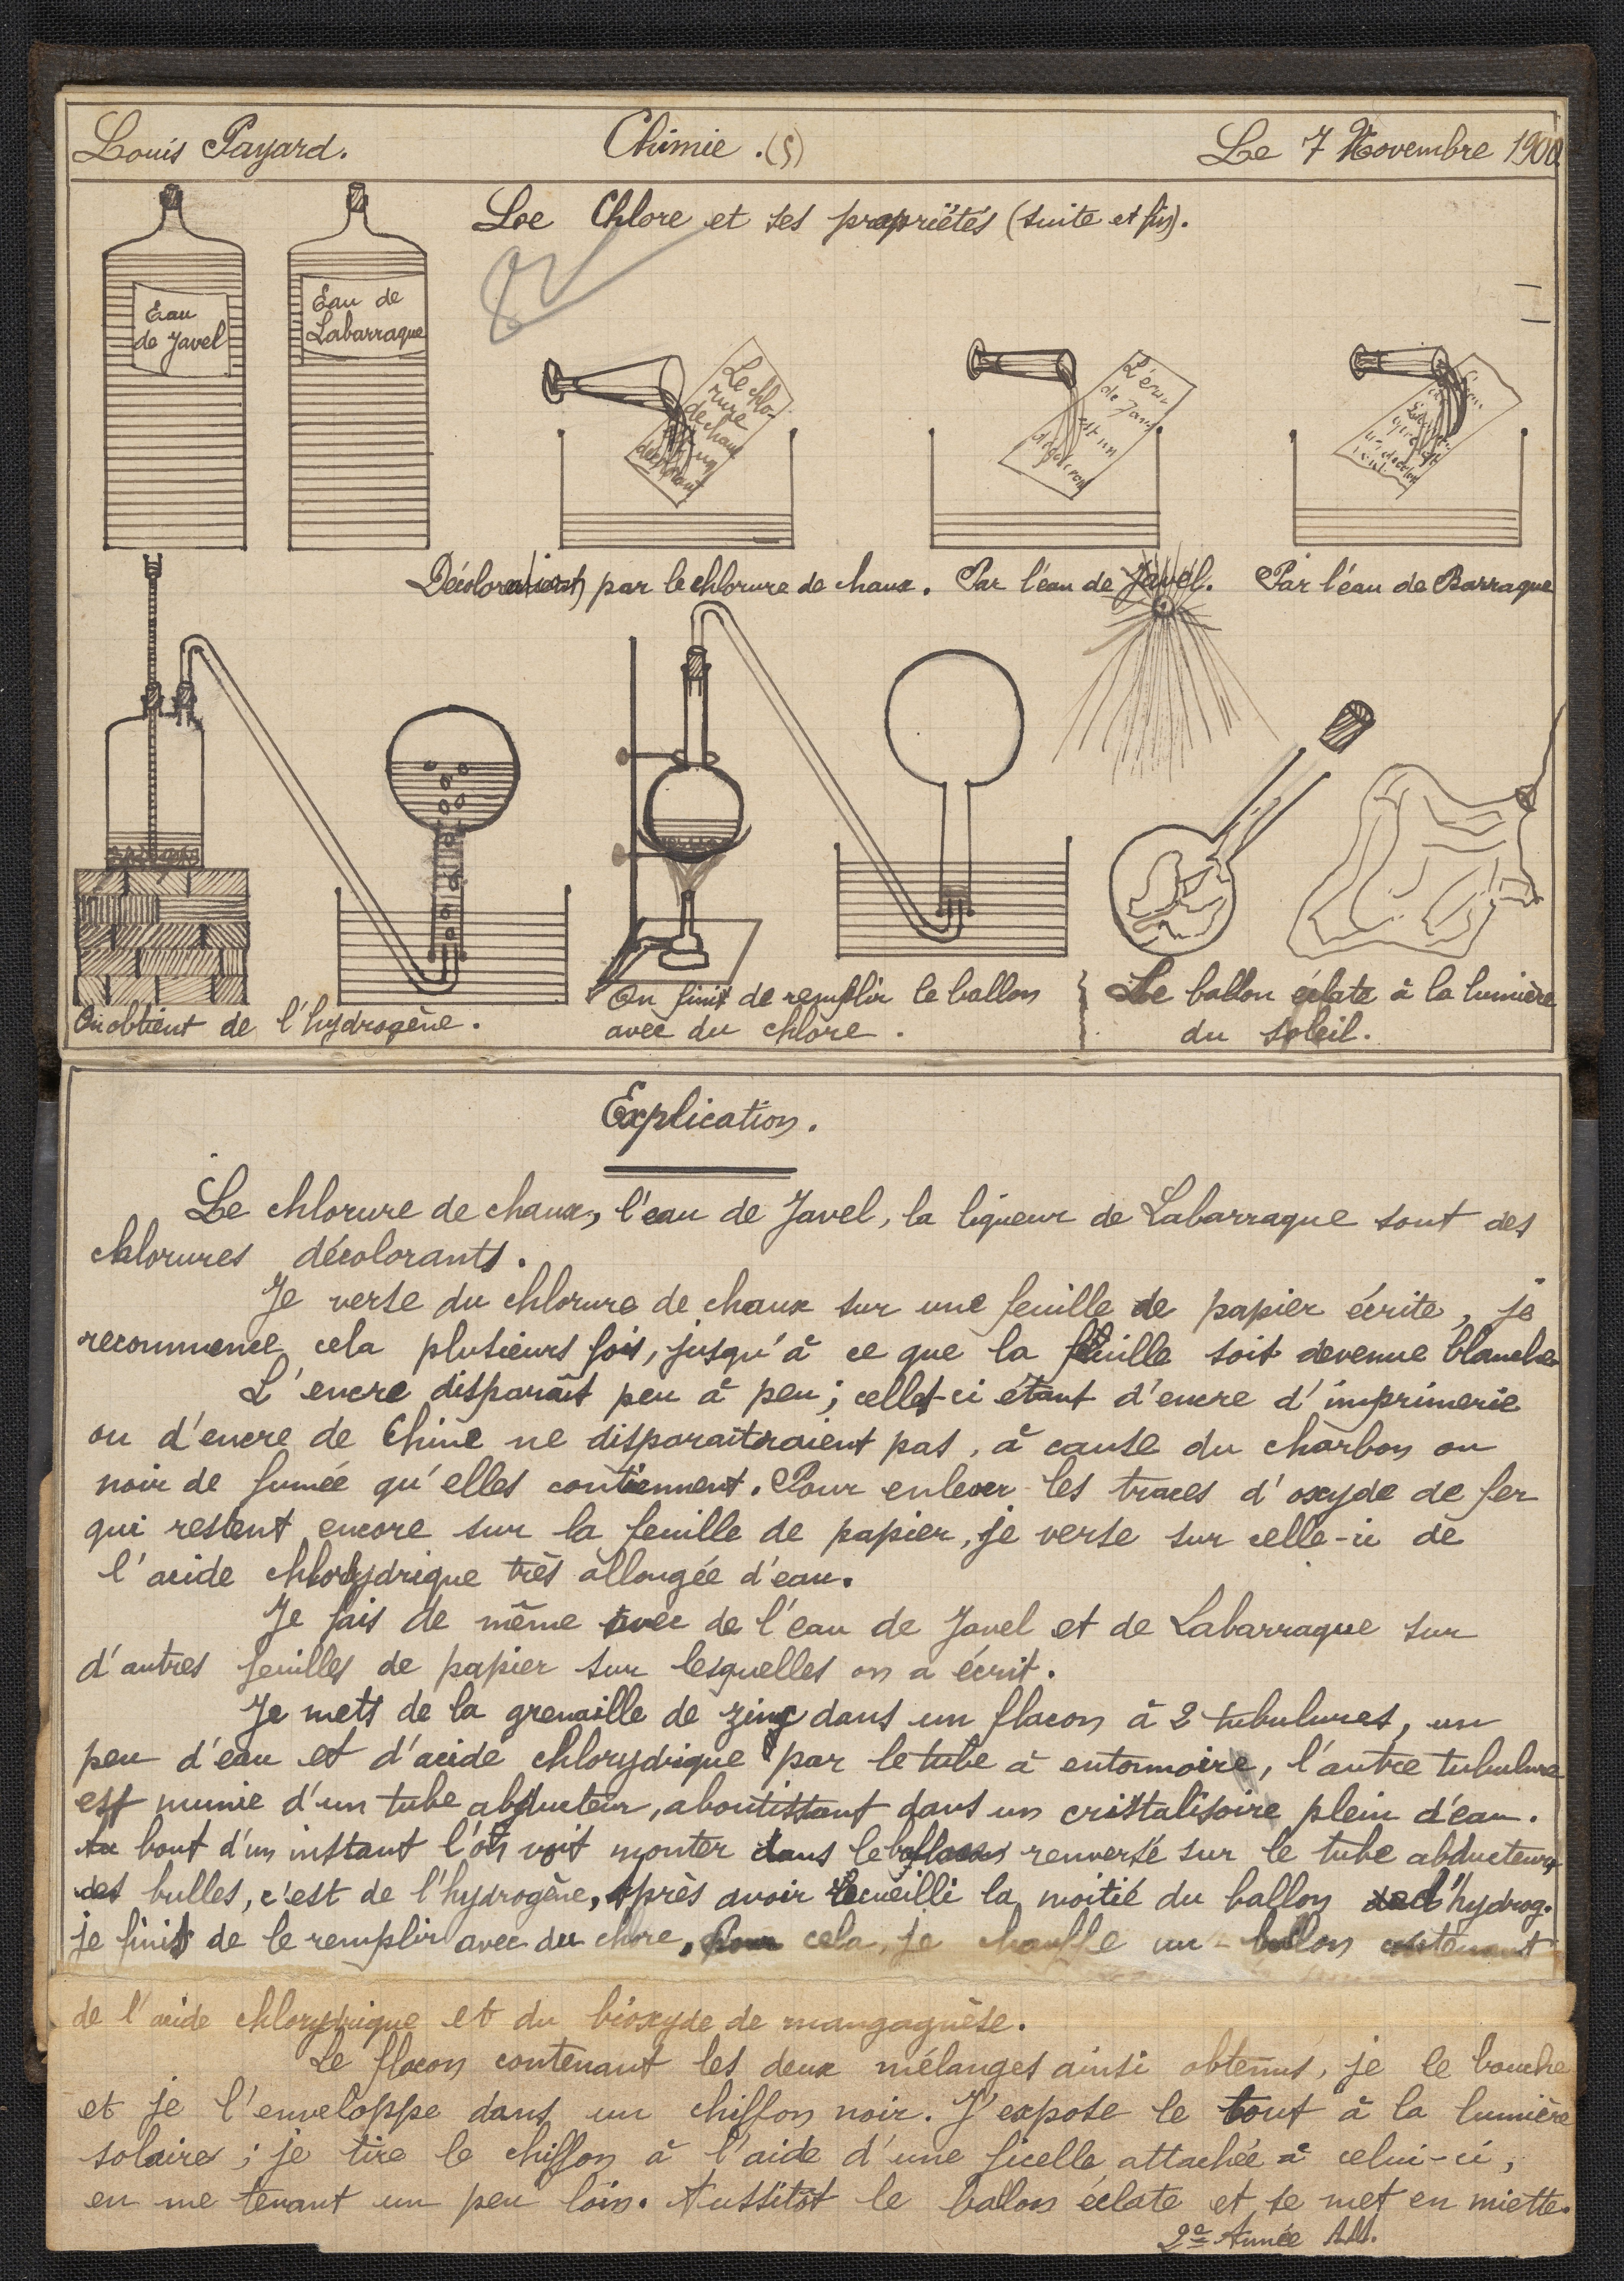 Louis Payard. Chimie. (5) Le 7 Novembre 1900
Le Chlore et ses propriétés (suite et fin).
Eau
de Javel
Eau de
Labarraque
Le chlo-
rure
de chaux
est un
décolorant
L'eau
de Javel
est un
décoloran
Décoloration par le chlorure de chaux. Par l'eau de Javel. Par l'éau de Barraque
On obtient de l'hydrogène.
On finit de remplir le ballon
avec du chlore.
Le ballon éclate à la lumière
du soleil.
Explication.
Le chlorure de chaux, l'eau de Javel, la liqueur de Labarraque sont des
chlorures décolorants.
Je verse du chlorure de chaux sur une feuille de papier écrite, je
recommence cela plusieurs fois, jusqu'à ce que la feuille soit devenue blanche
L'encre disparaît peu à peu; celles-ci étant d'encre d'imprimerie
ou d'encre de Chine ne disparaîtraient pas, à cause du charbon ou
noir de fumée qu'elles contiennent. Pour enlever les traces d'oxyde de fer
qui restent encore sur la feuille de papier, je verse sur celle-ci de
l'acide chlorydrique très allongée d'eau.
Je fais de même avec de l'eau de Javel et de Labarraque sur
d'autres feuilles de papier sur lesquelles on a écrit.
Je mets de la grenaille de zing dans un flacon à 2 tubulures, un
peu d'eau et d'acide chlorydrique par le tube à entonnoire, l'autre tubulure
est munie d'un tube abducteur, aboutissant dans un cristalisoire plein d'eau.
Au bout d'un instant l'on voit monter dans le renversé sur le tube abducteur,
des bulles, c'est de l'hydrogène, après avoir recueilli la moitié du ballon d'hydrog.
je finis de le remplir avec du chore, Pour cela, je chauffe un ballon contenant
de l'acide chlorydrique et du bioxyde de mangagnèse.
Le flacon contenant les deux mélanges ainsi obtenus, je le bouche
et je l'enveloppe dans un chiffon noir. J'expose le tout à la lumière
solaire; je tire le chiffon à l'aide d'une ficelle attachée à celui-ci,
en me tenant un peu loin. Aussitôt le ballon éclate et se met en miette.
2e Année